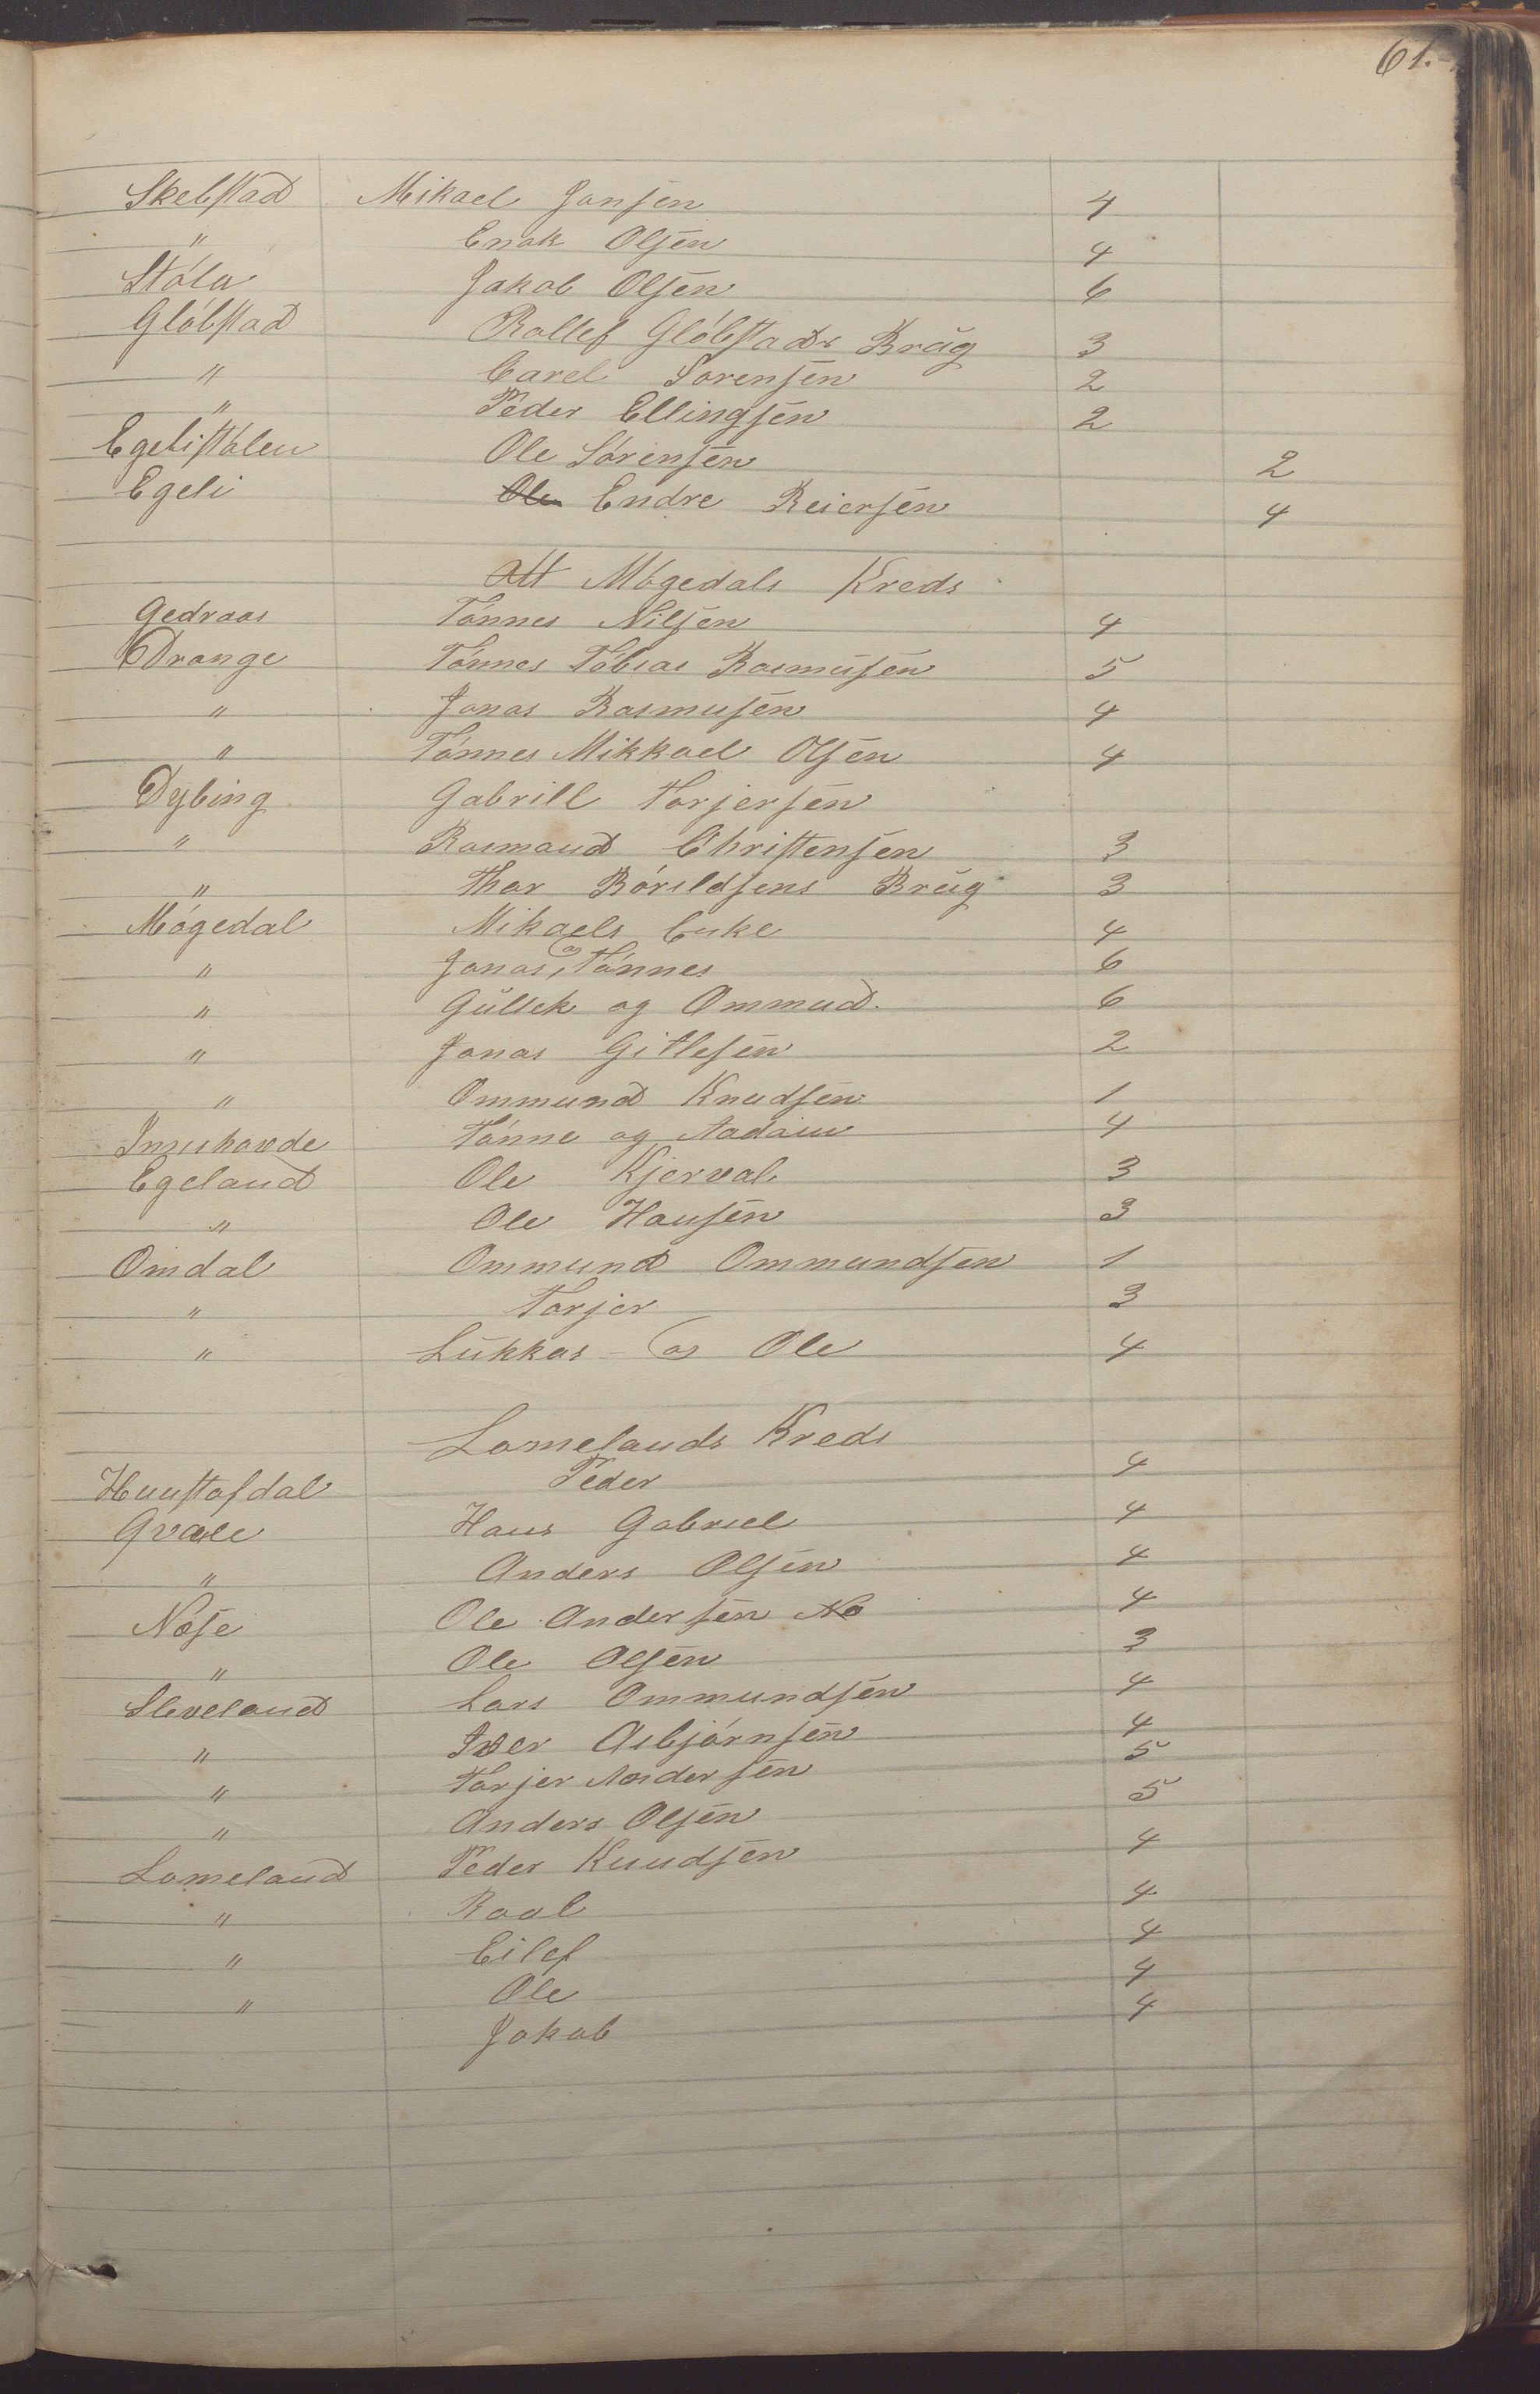 61.
Skebstad Mikael Jonsen 4
" Enok Olsen 4
Støla Jakob Olsen 6
Gløbstad Rollef Gløbstads Brug 3
" Carel Sørensen 2
" Peder Ellingsen 2
Egelistølen Ole Sørensen 2
Egeli Ole Endre Reiersen 4
Att Møgedals Kreds
Gedraas Tønnes Nilsen 4
Drange Tønnes Tobias Rasmusen 5
" Jonas Rasmusen 4
" Tønnes Mikkael Olsen 4
Dybing Gabrill Torjersen
" Rasmaud Christensen 3
" Thor Bórildsens Brug 3
Møgedal Mikaels Enke 4
" Jonas og Tønnes 6
" Gullek og Ommud. 6
" Jonas Gitlesen 2
" Ommund Knudsen 1
Tønne og 4
Egeland Ole Kjerval 3
" Ole Hansen 3
Omdal Ommund Ommundsen 1
" Torjer 3
" Lukkas og Ole 4
Lomelands Kreds
Peder 4
Qvåle Hans Gabriel 4
" Anders Olsen 4
Nose Ole Andersen No 4
" Ole Olsen 3
Sleveland Lars Ommundsen 4
" Iver Asbjørnsen 4
" Torjer Andersen 5
" Anders Olsen 5
Lomeland Peder Knudsen 4
" Roal 4
" Eilef 4
" Ole 4
Jakob 4